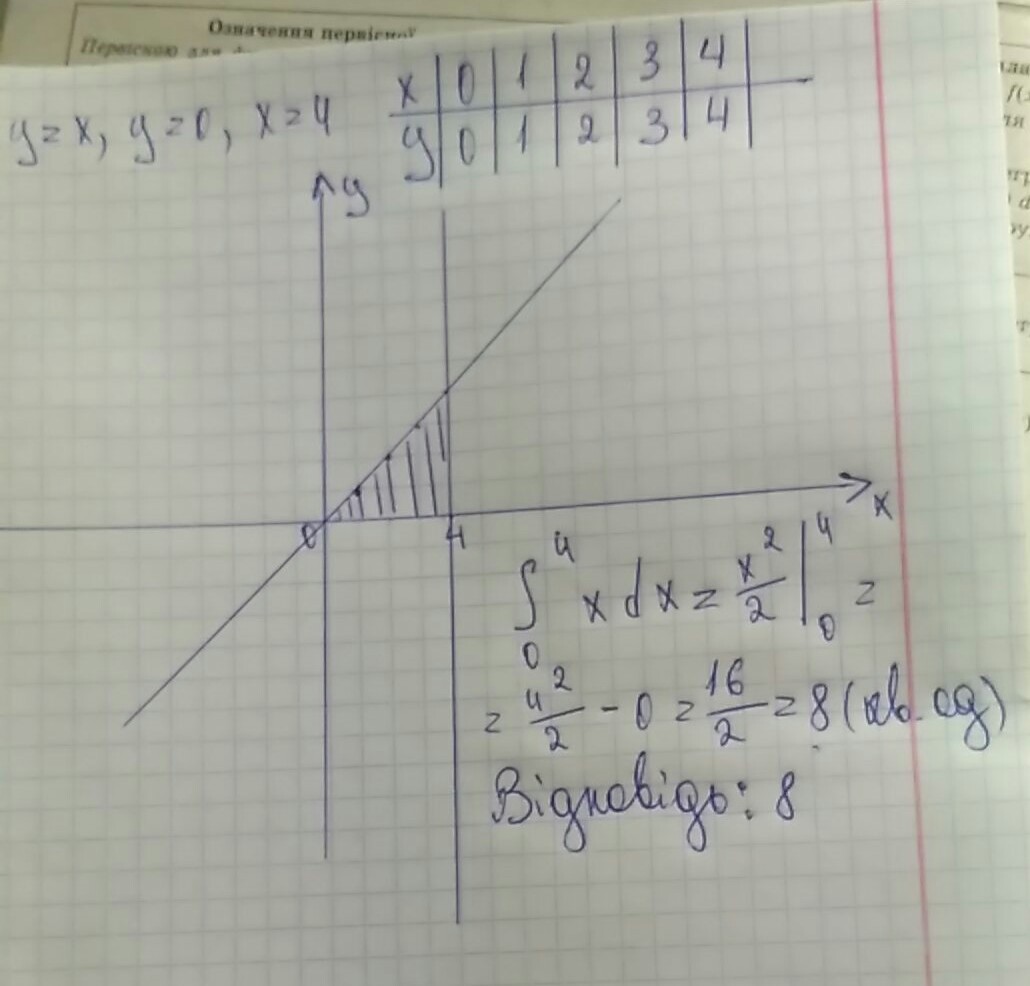 Означення первісної
Первісною для
y = x, y = 0, x = 4
x | 0 | 1 | 2 | 3 | 4 |
y | 0 | 1 | 2 | 3 | 4 |
y
x
0 4
∫₀⁴ x dx = x²/2 |₀⁴ =
= 4²/2 - 0 = 16/2 = 8 (кв. од)
Відповідь: 8